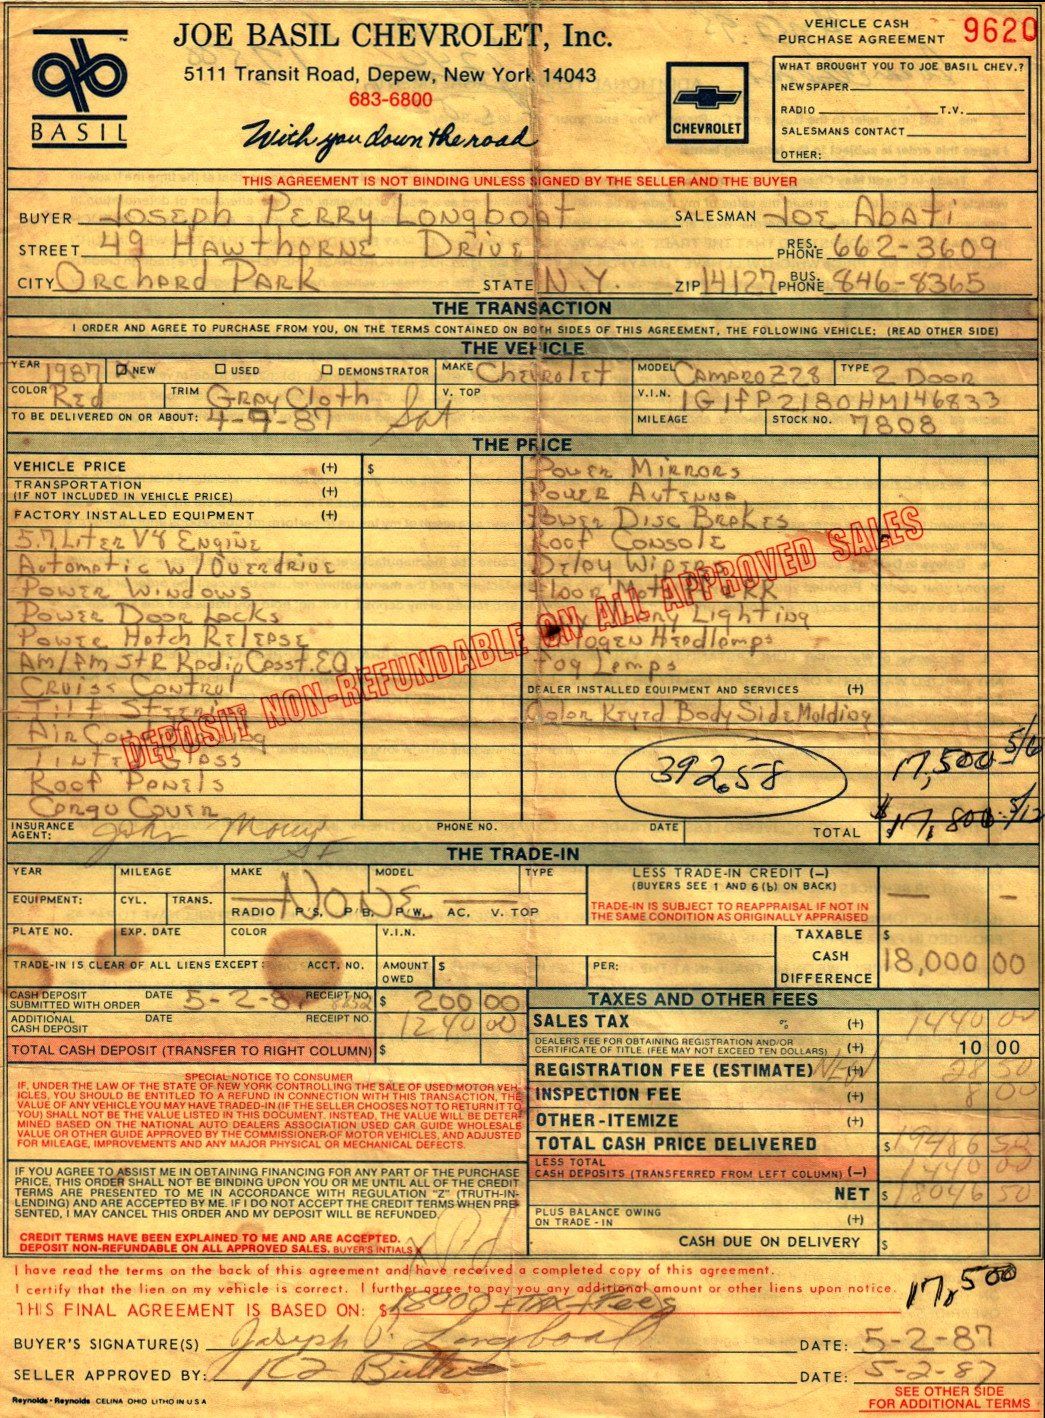 BASIL
JOE BASIL CHEVROLET, Inc.
5111 Transit Road, Depew, New York 14043
683-6800
With you down the road
CHEVROLET
VEHICLE CASH
PURCHASE AGREEMENT 9620
WHAT BROUGHT YOU TO JOE BASIL CHEV.?
NEWSPAPER
RADIO T.V.
SALESMANS CONTACT
OTHER:
THIS AGREEMENT IS NOT BINDING UNLESS SIGNED BY THE SELLER AND THE BUYER
BUYER Joseph Perry Longboat SALESMAN Joe Abati
STREET 49 Hawthorne Drive RES. PHONE 662-3609
CITY Orchard Park STATE N.Y. ZIP 14127 BUS. PHONE 846-8365
THE TRANSACTION
I ORDER AND AGREE TO PURCHASE FROM YOU, ON THE TERMS CONTAINED ON BOTH SIDES OF THIS AGREEMENT, THE FOLLOWING VEHICLE: (READ OTHER SIDE)
THE VEHICLE
YEAR 1987 X NEW USED DEMONSTRATOR MAKE Chevrolet MODEL Camaro Z28 TYPE 2 Door
COLOR Red TRIM Gray Cloth V. TOP V.I.N. 1G1fP2180HM146833
TO BE DELIVERED ON OR ABOUT: 4-9-87 Sat MILEAGE STOCK NO. 7808
THE PRICE
VEHICLE PRICE (+) $ Power Mirrors
TRANSPORTATION
(IF NOT INCLUDED IN VEHICLE PRICE) (+) Power Antenna
FACTORY INSTALLED EQUIPMENT (+) Power Disc Brakes
5.7 Liter V8 Engine Roof Console
Automatic w/ Overdrive Delay Wiper
Power Windows Floor Mats
Power Door Locks Lighting
Power Hatch Release Halogen Headlamps
AM/FM StR Radio Casst. EQ Fog Lamps
Cruise Control DEALER INSTALLED EQUIPMENT AND SERVICES (+)
Tilt Steering Color Keyed Body Side Molding
Air Conditioning
Tinted Glass 392.58 17,500 5/6
Roof Panels
Cargo Cover $ 17,800 5/12
DEPOSIT NON-REFUNDABLE ON ALL APPROVED SALES
INSURANCE
AGENT: John PHONE NO. DATE TOTAL
THE TRADE-IN
YEAR MILEAGE MAKE MODEL TYPE LESS TRADE-IN CREDIT (–)
(BUYERS SEE 1 AND 6 (b) ON BACK)
None
EQUIPMENT: CYL. TRANS. RADIO P.S. P.B. P.W. AC. V. TOP TRADE-IN IS SUBJECT TO REAPPRAISAL IF NOT IN
THE SAME CONDITION AS ORIGINALLY APPRAISED
PLATE NO. EXP. DATE COLOR V.I.N. TAXABLE
CASH
DIFFERENCE $ 18,000 00
TRADE-IN IS CLEAR OF ALL LIENS EXCEPT: ACCT. NO. AMOUNT OWED $ PER:
CASH DEPOSIT
SUBMITTED WITH ORDER DATE 5-2-87 RECEIPT NO. $ 200 00
ADDITIONAL
CASH DEPOSIT DATE RECEIPT NO. 1240 00
TOTAL CASH DEPOSIT (TRANSFER TO RIGHT COLUMN) $
SPECIAL NOTICE TO CONSUMER
IF, UNDER THE LAW OF THE STATE OF NEW YORK CONTROLLING THE SALE OF USED MOTOR VEH-
ICLES, YOU SHOULD BE ENTITLED TO A REFUND IN CONNECTION WITH THIS TRANSACTION, THE
VALUE OF ANY VEHICLE YOU MAY HAVE TRADED-IN (IF THE SELLER CHOOSES NOT TO RETURN IT TO
YOU) SHALL NOT BE THE VALUE LISTED IN THIS DOCUMENT. INSTEAD, THE VALUE WILL BE DETER-
MINED BASED ON THE NATIONAL AUTO DEALERS ASSOCIATION USED CAR GUIDE WHOLESALE
VALUE OR OTHER GUIDE APPROVED BY THE COMMISSIONER OF MOTOR VEHICLES, AND ADJUSTED
FOR MILEAGE, IMPROVEMENTS AND ANY MAJOR PHYSICAL OR MECHANICAL DEFECTS.
IF YOU AGREE TO ASSIST ME IN OBTAINING FINANCING FOR ANY PART OF THE PURCHASE
PRICE, THIS ORDER SHALL NOT BE BINDING UPON YOU OR ME UNTIL ALL OF THE CREDIT
TERMS ARE PRESENTED TO ME IN ACCORDANCE WITH REGULATION "Z" (TRUTH-IN-
LENDING) AND ARE ACCEPTED BY ME. IF I DO NOT ACCEPT THE CREDIT TERMS WHEN PRE-
SENTED, I MAY CANCEL THIS ORDER AND MY DEPOSIT WILL BE REFUNDED.
CREDIT TERMS HAVE BEEN EXPLAINED TO ME AND ARE ACCEPTED.
DEPOSIT NON-REFUNDABLE ON ALL APPROVED SALES. BUYER'S INTIALS X
TAXES AND OTHER FEES
SALES TAX % (+) 1440 00
DEALER'S FEE FOR OBTAINING REGISTRATION AND/OR
CERTIFICATE OF TITLE. (FEE MAY NOT EXCEED TEN DOLLARS) (+) 10 00
REGISTRATION FEE (ESTIMATE) New (+) 28 50
INSPECTION FEE (+) 8 00
OTHER-ITEMIZE (+)
TOTAL CASH PRICE DELIVERED $ 19486 50
LESS TOTAL
CASH DEPOSITS (TRANSFERRED FROM LEFT COLUMN) (–) 1440 00
NET $ 18046 50
PLUS BALANCE OWING
ON TRADE-IN (+)
CASH DUE ON DELIVERY $
I have read the terms on the back of this agreement and have received a completed copy of this agreement.
I certify that the lien on my vehicle is correct. I further agree to pay you any additional amount or other liens upon notice.
THIS FINAL AGREEMENT IS BASED ON: $ 18000 + tax + fees 17,500
BUYER'S SIGNATURE(S) Joseph P. Longboat DATE: 5-2-87
SELLER APPROVED BY: DATE: 5-2-87
Reynolds + Reynolds CELINA OHIO LITHO IN U S A
SEE OTHER SIDE
FOR ADDITIONAL TERMS